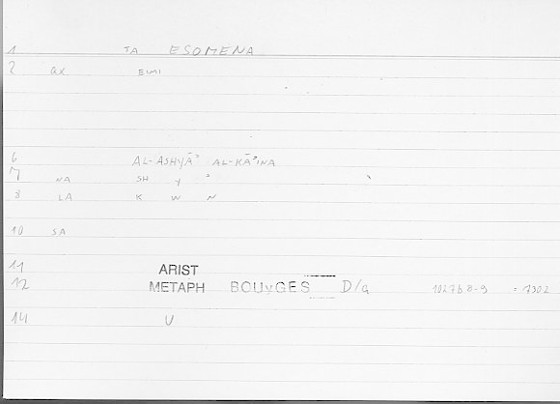 1 TA ESOMENA
2 ax EIMI
6 AL-ASHYĀʾ AL-KĀʾINA
7 NA SH Y ʾ
8 LA K W N
10 SA
11 ARIST
12 METAPH BOUyGES D/a 1027b8-9
14 U